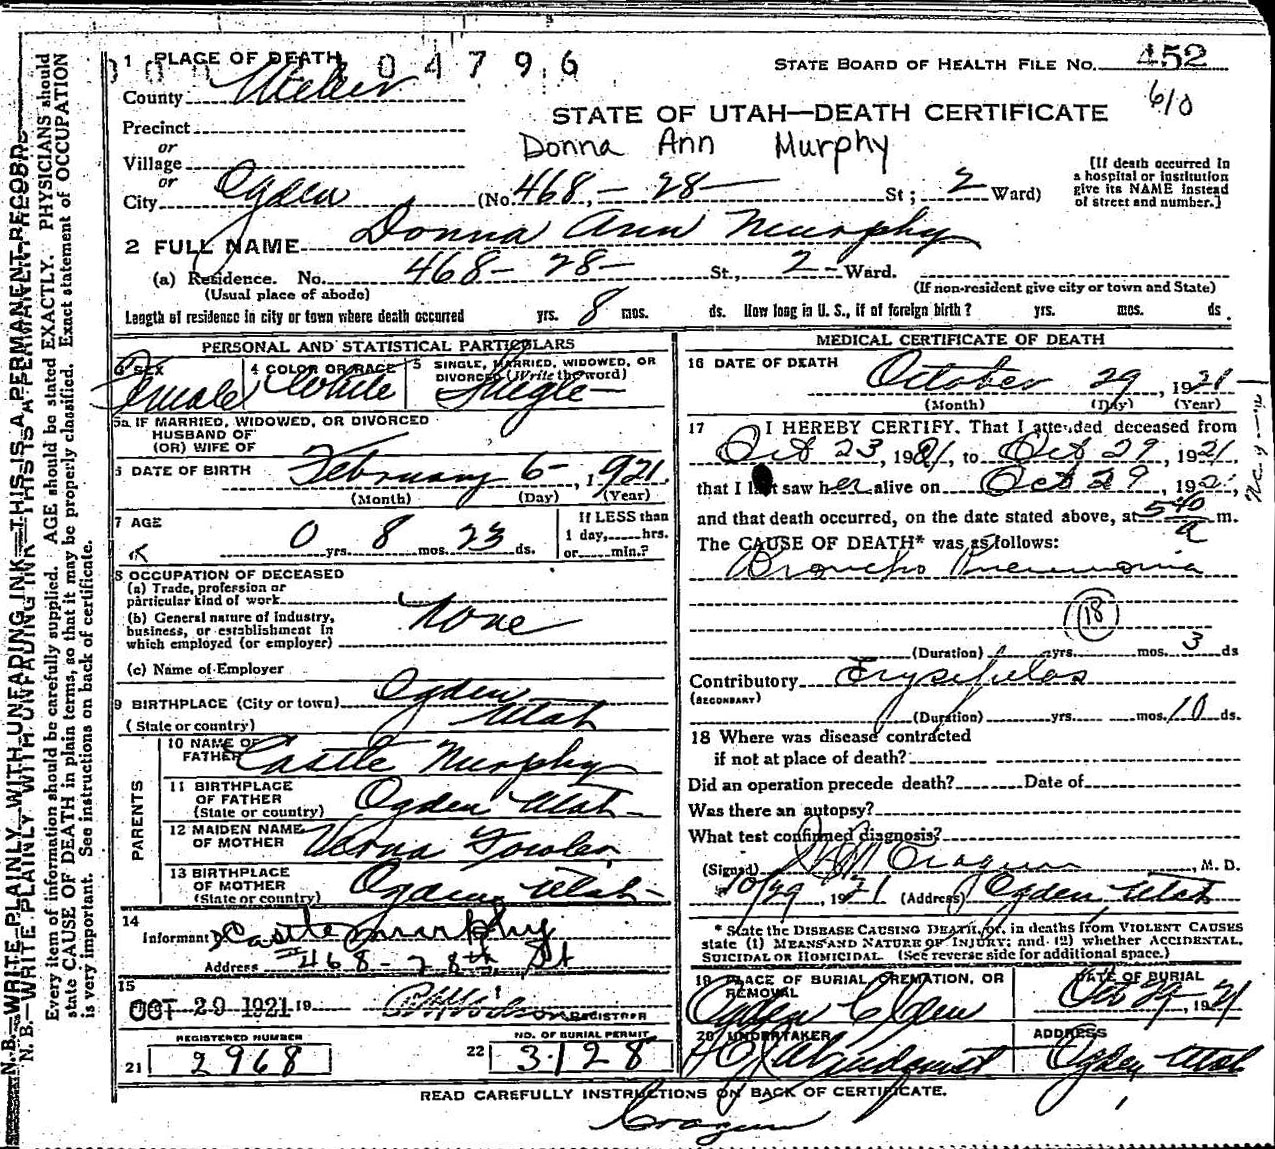 1 PLACE OF DEATH
04796
STATE BOARD OF HEALTH FILE No. 452
610
County Weber
STATE OF UTAH—DEATH CERTIFICATE
Precinct
or
Donna Ann Murphy
Village
or
City Ogden (No. 468 - 28 - St; 2 Ward)
[If death occurred in
a hospital or institution
give its NAME instead
of street and number.]
2 FULL NAME Donna Ann Murphy
(a) Residence. No. 468 - 28 - St., 2 - Ward.
(Usual place of abode) (If non-resident give city or town and State)
Length of residence in city or town where death occurred yrs. 8 mos. ds. How long in U. S., if of foreign birth? yrs. mos. ds.
PERSONAL AND STATISTICAL PARTICULARS
3 SEX Female
4 COLOR OR RACE White
5 SINGLE, MARRIED, WIDOWED, OR
DIVORCED (Write the word) Single
5a IF MARRIED, WIDOWED, OR DIVORCED
HUSBAND OF
(OR) WIFE OF
6 DATE OF BIRTH February 6 - , 1921
(Month) (Day) (Year)
7 AGE
0 yrs. 8 mos. 23 ds.
If LESS than
1 day, hrs.
or min.?
8 OCCUPATION OF DECEASED
(a) Trade, profession or
particular kind of work
(b) General nature of industry,
business, or establishment in
which employed (or employer)
None
(c) Name of Employer
9 BIRTHPLACE (City or town) Ogden
(State or country) Utah
PARENTS
10 NAME OF
FATHER Castle Murphy
11 BIRTHPLACE
OF FATHER
(State or country) Ogden Utah
12 MAIDEN NAME
OF MOTHER Verna Fowler
13 BIRTHPLACE
OF MOTHER
(State or country) Ogden, Utah
14
Informant Castle Murphy
Address 468 - 28th St
15
OCT 29 1921 19 REGISTRAR
REGISTERED NUMBER
21 2968
NO. OF BURIAL PERMIT
22 3128
MEDICAL CERTIFICATE OF DEATH
16 DATE OF DEATH October 29, 1921
(Month) (Day) (Year)
17 I HEREBY CERTIFY, That I attended deceased from
Oct 23, 1921, to Oct 29, 1921,
that I last saw her alive on Oct 29, 1921,
and that death occurred, on the date stated above, at 5 40 a m.
The CAUSE OF DEATH* was as follows:
Broncho Pneumonia
18
(Duration) yrs. mos. 3 ds
Contributory Erysipelas
(SECONDARY)
(Duration) yrs. mos. 10 ds.
18 Where was disease contracted
if not at place of death?
Did an operation precede death? Date of
Was there an autopsy?
What test confirmed diagnosis?
(Signed) Cragun, M. D.
10/29, 1921 (Address) Ogden, Utah
* State the DISEASE CAUSING DEATH, or, in deaths from VIOLENT CAUSES
state (1) MEANS AND NATURE OF INJURY; and (2) whether ACCIDENTAL,
SUICIDAL OR HOMICIDAL. (See reverse side for additional space.)
19 PLACE OF BURIAL, CREMATION, OR
REMOVAL
Ogden
DATE OF BURIAL
Oct 29 - 1921
20 UNDERTAKER
Lindquist
ADDRESS
Ogden, Utah
READ CAREFULLY INSTRUCTIONS ON BACK OF CERTIFICATE.
Cragun
N. B.—WRITE PLAINLY WITH UNFADING INK—THIS IS A PERMANENT RECORD
N. B.—WRITE PLAINLY WITH UNFADING INK—THIS IS A PERMANENT RECORD
Every item of information should be carefully supplied. AGE should be stated EXACTLY. PHYSICIANS should
state CAUSE OF DEATH in plain terms, so that it may be properly classified. Exact statement of OCCUPATION
is very important. See instructions on back of certificate.